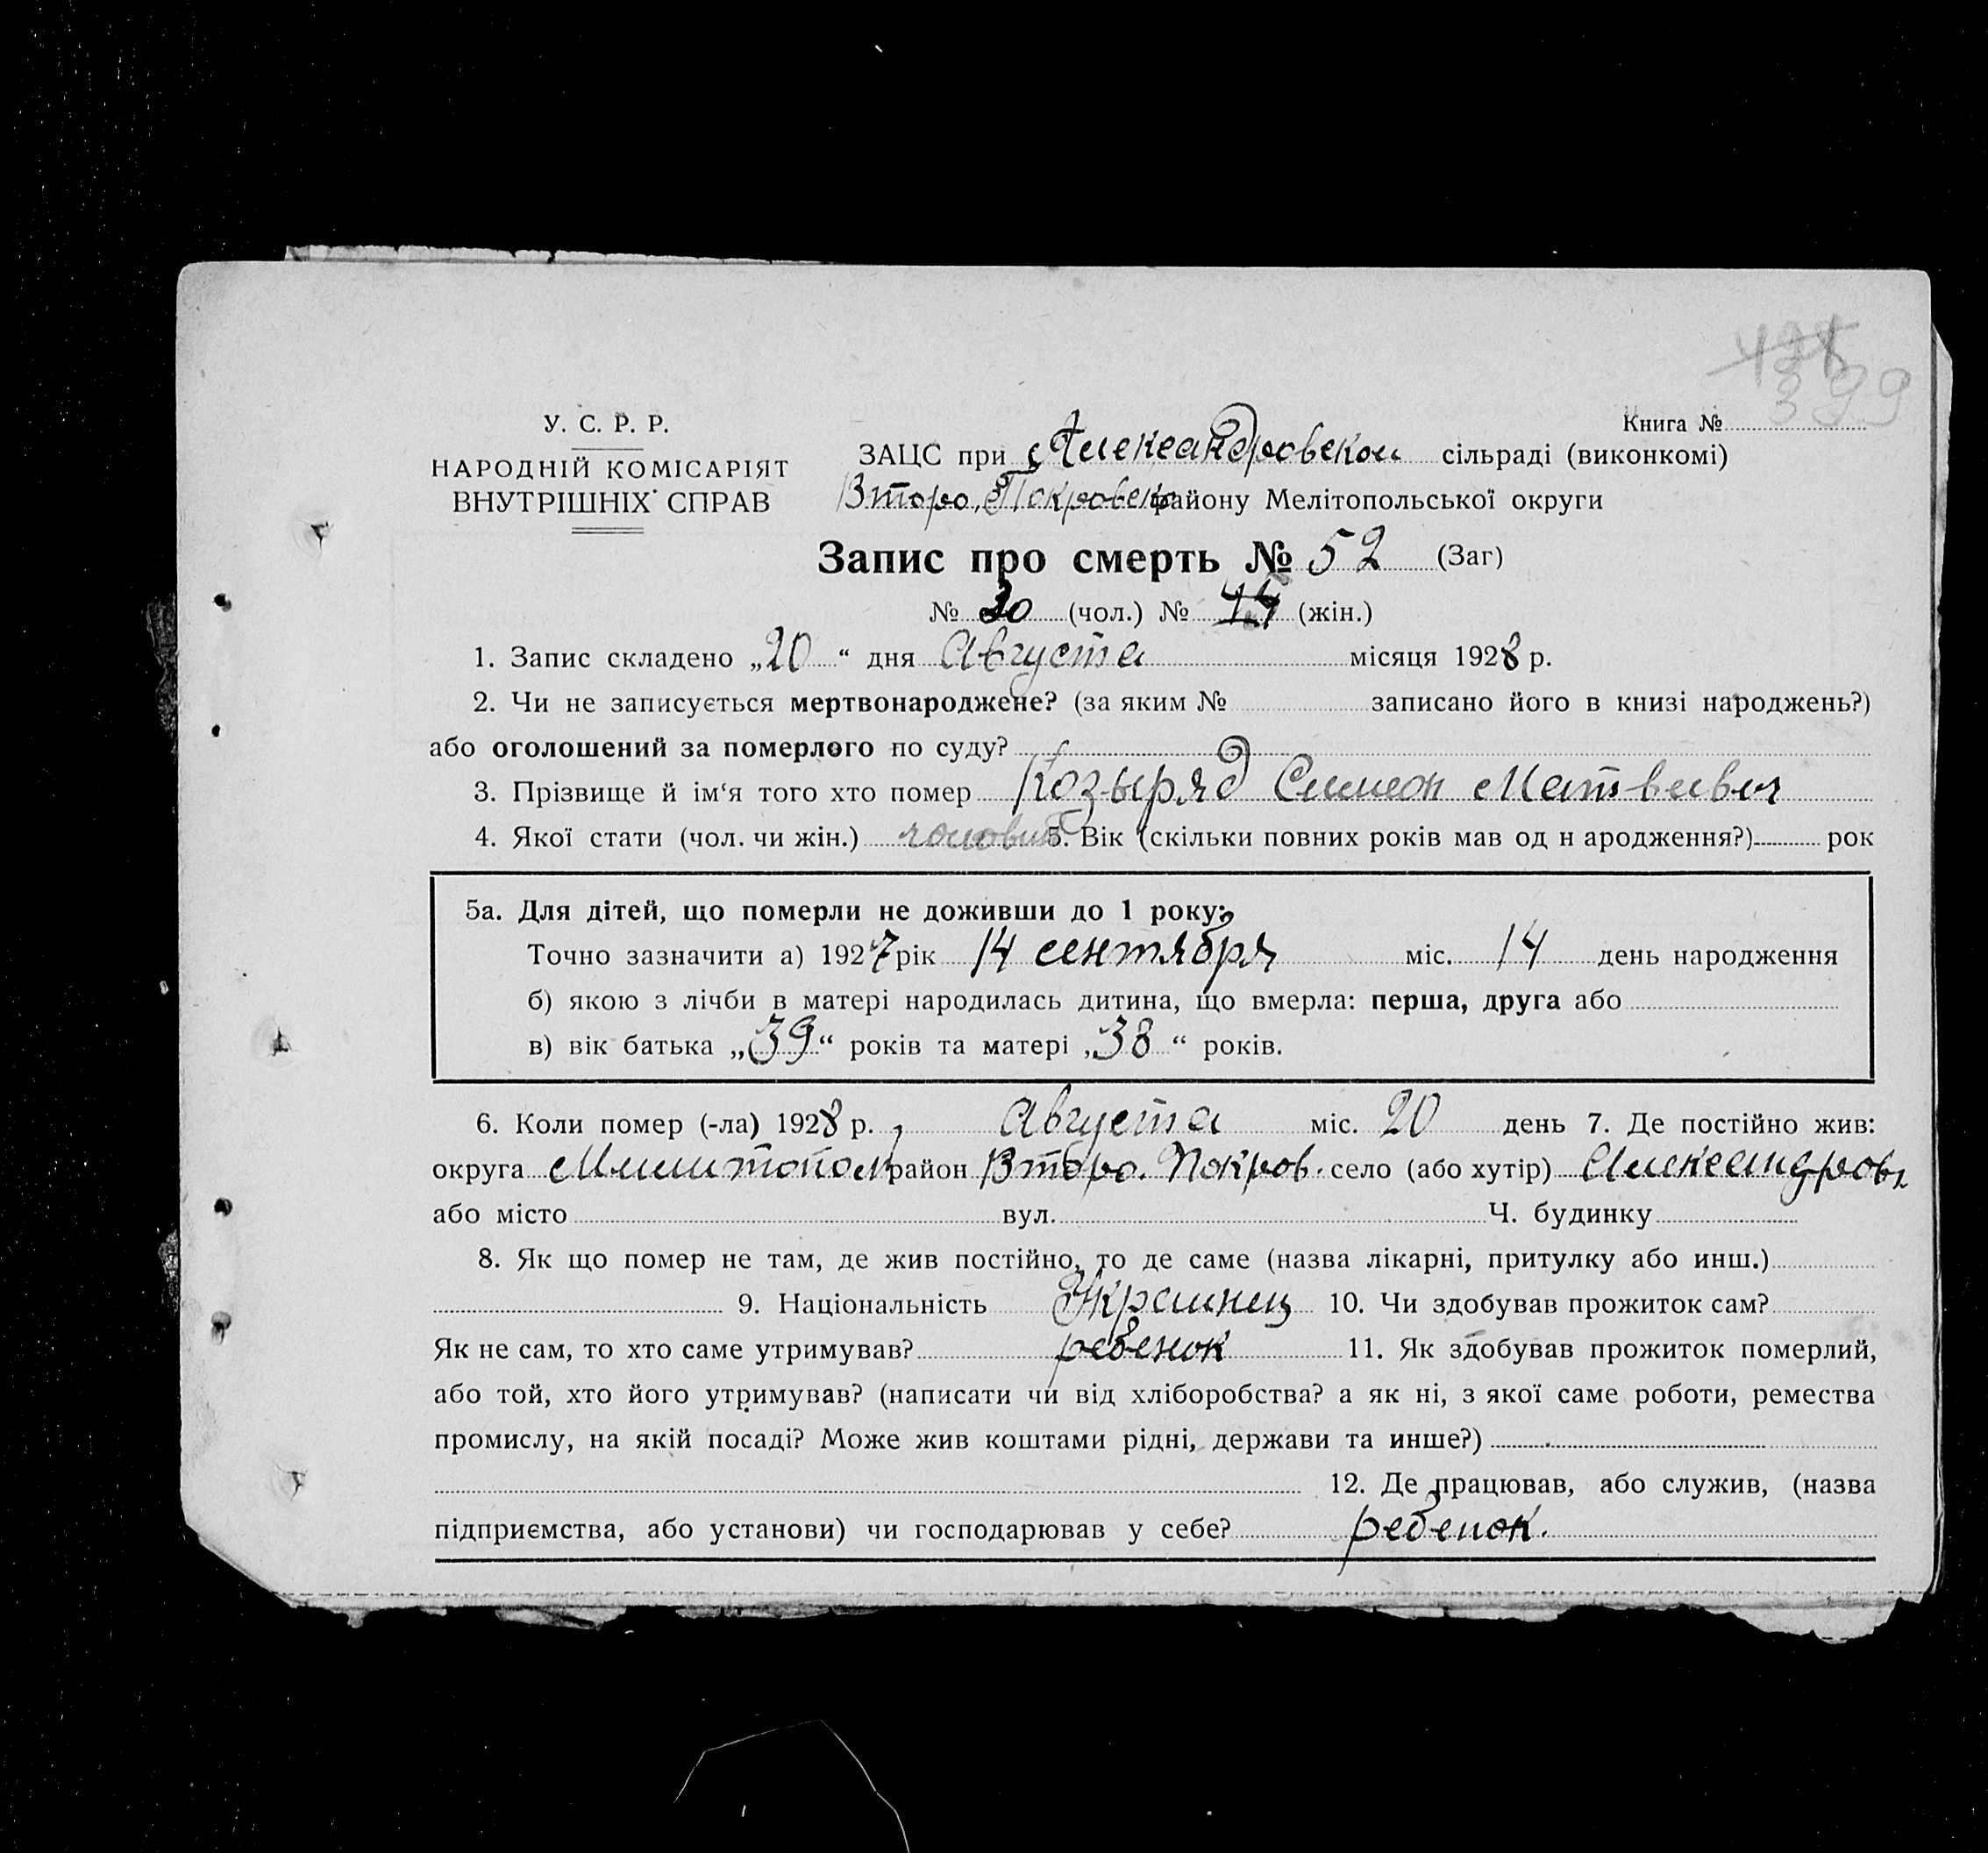 399
У. С. Р. Р.
НАРОДНІЙ КОМІСАРІЯТ
ВНУТРІШНІХ СПРАВ
Книга №
ЗАЦС при Александровской сільраді (виконкомі)
Второ. Покровск району Мелітопольської округи
Запис про смерть № 52 (Заг)
№ 30 (чол.) № (жін.)
1. Запис складено „20“ дня Августа місяця 1928 р.
2. Чи не записується мертвонароджене? (за яким № записано його в книзі народжень?)
або оголошений за померлого по суду?
3. Прізвище й ім‘я того хто помер Козыряд Симеон Матвеевич
4. Якої стати (чол. чи жін.) 5. Вік (скільки повних років мав од н ародження?) рок
5а. Для дітей, що померли не доживши до 1 року:
Точно зазначити а) 1927 рік 14 сентября міс. 14 день народження
б) якою з лічби в матері народилась дитина, що вмерла: перша, друга або
в) вік батька „39“ років та матері „38“ років.
6. Коли помер (-ла) 1928 р. Августа міс. 20 день 7. Де постійно жив:
округа Мелитопол район Второ. Покров. село (або хутір) Александровк
або місто вул. Ч. будинку
8. Як що помер не там, де жив постійно, то де саме (назва лікарні, притулку або инш.)
9. Національність Украинец 10. Чи здобував прожиток сам?
Як не сам, то хто саме утримував? ребенок 11. Як здобував прожиток померлий,
або той, хто його утримував? (написати чи від хліборобства? а як ні, з якої саме роботи, ремества
промислу, на якій посаді? Може жив коштами рідні, держави та инше?)
12. Де працював, або служив, (назва
підприємства, або установи) чи господарював у себе? ребенок.